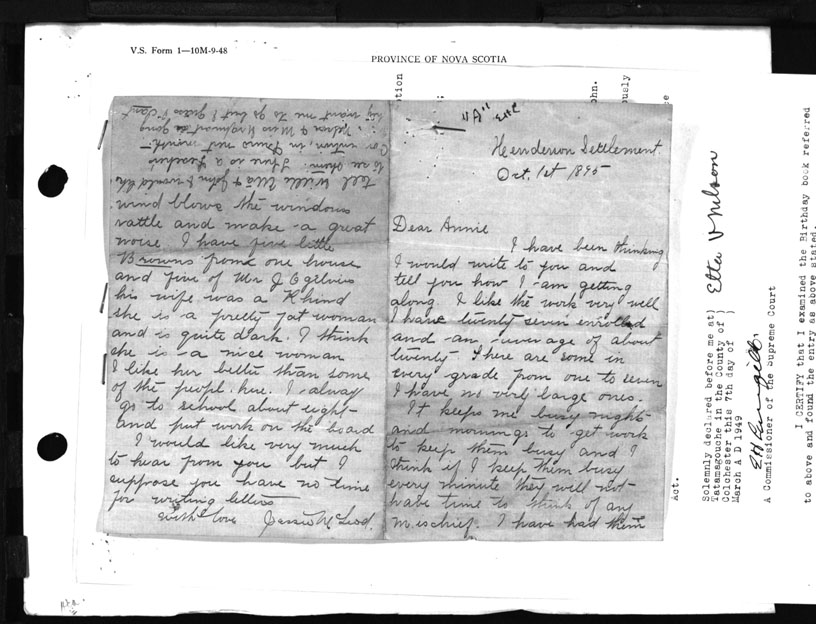 V.S. Form 1—10M-9-48
PROVINCE OF NOVA SCOTIA
"A" EHC
Henderson Settlement.
Oct. 1st 1895
Dear Annie
I have been thinking
I would write to you and
tell you how I am getting
along. I like the work very well
I have twenty seven enrolled
and an average of about
twenty There are some in
every grade from one to seven
I have no very large ones.
It keeps me busy nights
and mornings to get work
to keep them busy and I
think if I keep them busy
every minute they will not
have time to think of any
mischief. I have had them
wind blows the windows
rattle and make a great
noise I have five little
Browns from one house
and five of Mr J Ogilvies
his wife was a Rhind
she is a pretty fat woman
and is quite dark. I think
she is a nice woman
I like her better than some
of the people here. I alway
go to school about eight
and put work on the board
I would like very much
to hear from you but I
suppose you have no time
for writing letters
with love Jessie McLeod.
tell Willie Ella & John I would like
to see them. There is a Teacher's
Convention in Truro next month
& Miss Urquhart is going
they want me to go but I guess I can't
Act.
Solemnly declared before me at)
Tatamagouche in the County of )
Colchester this 7th day of )
March A D 1949
Etta V Nelson
A Commissioner of the Supreme Court
I CERTIFY that I examined the Birthday book referred
to above and found the entry as above stated.